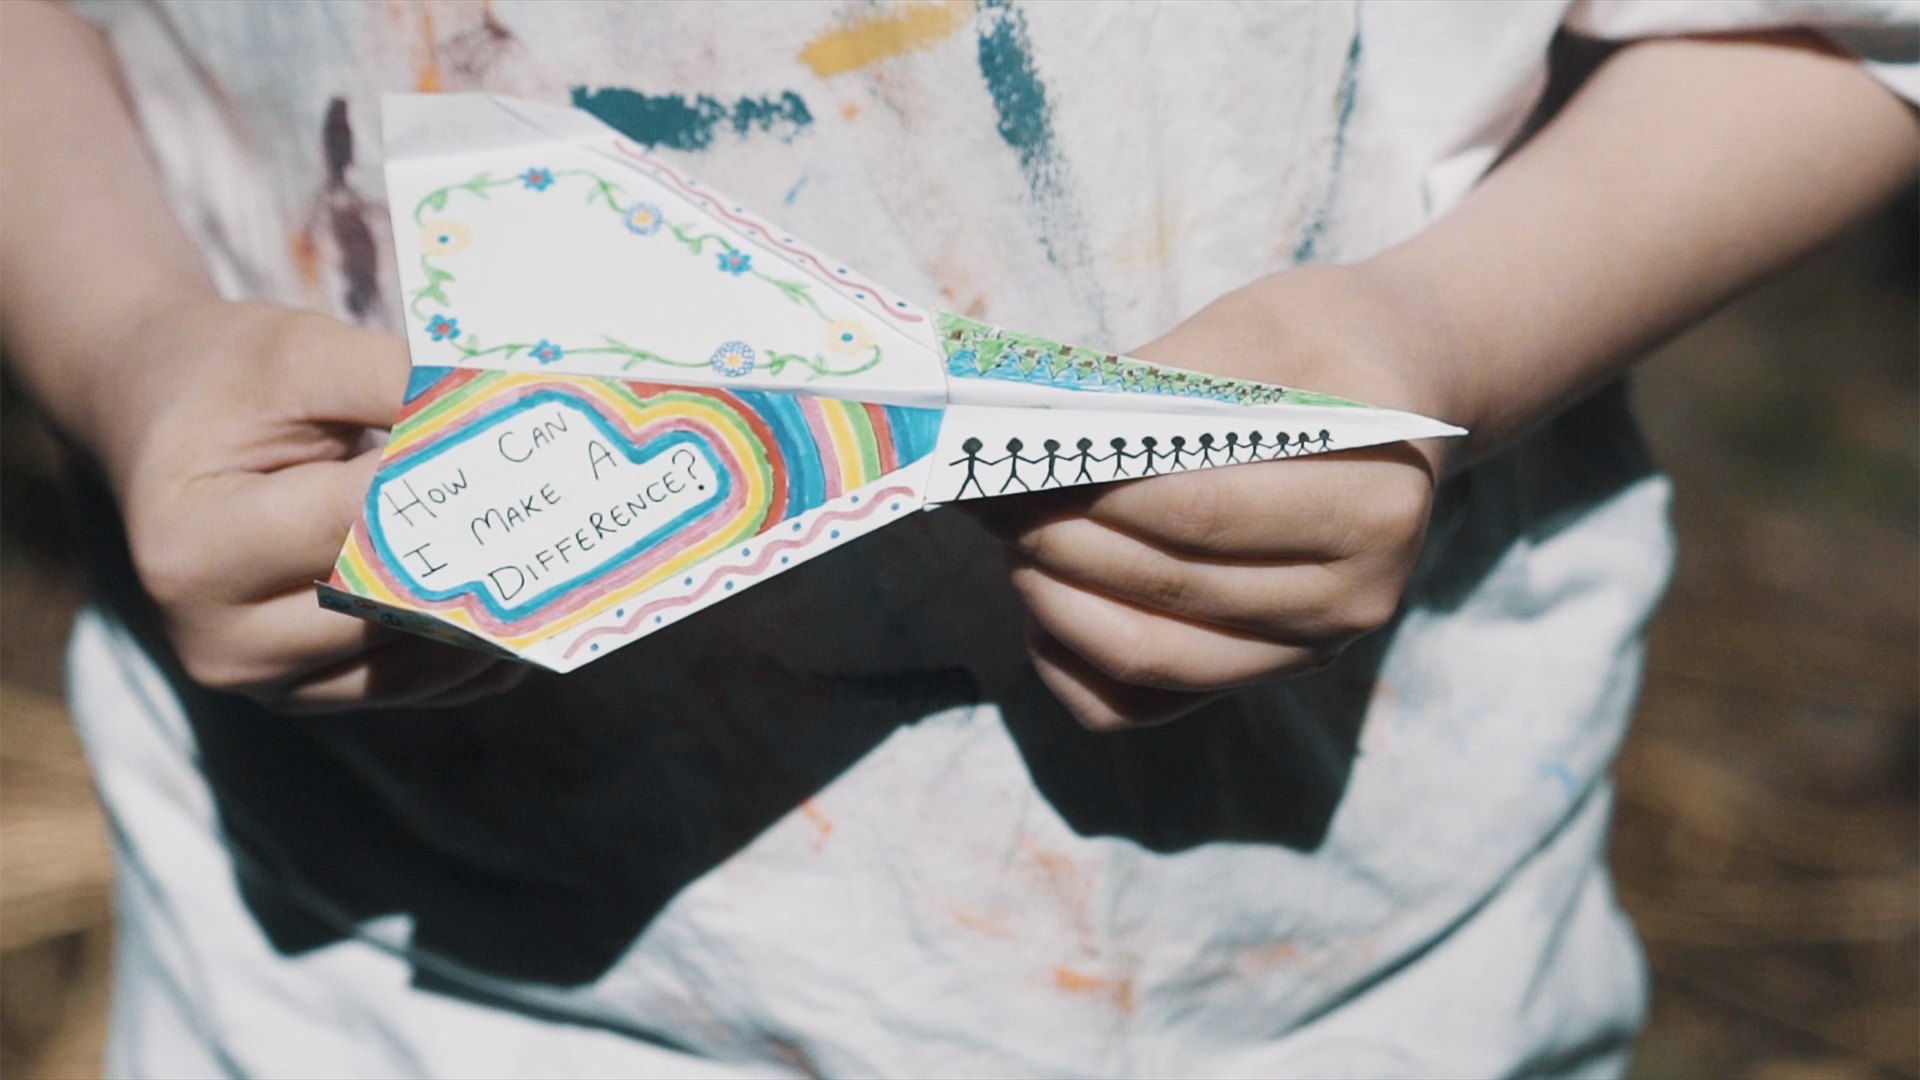 How CAN
I MAKE A
DIFFERENCE?